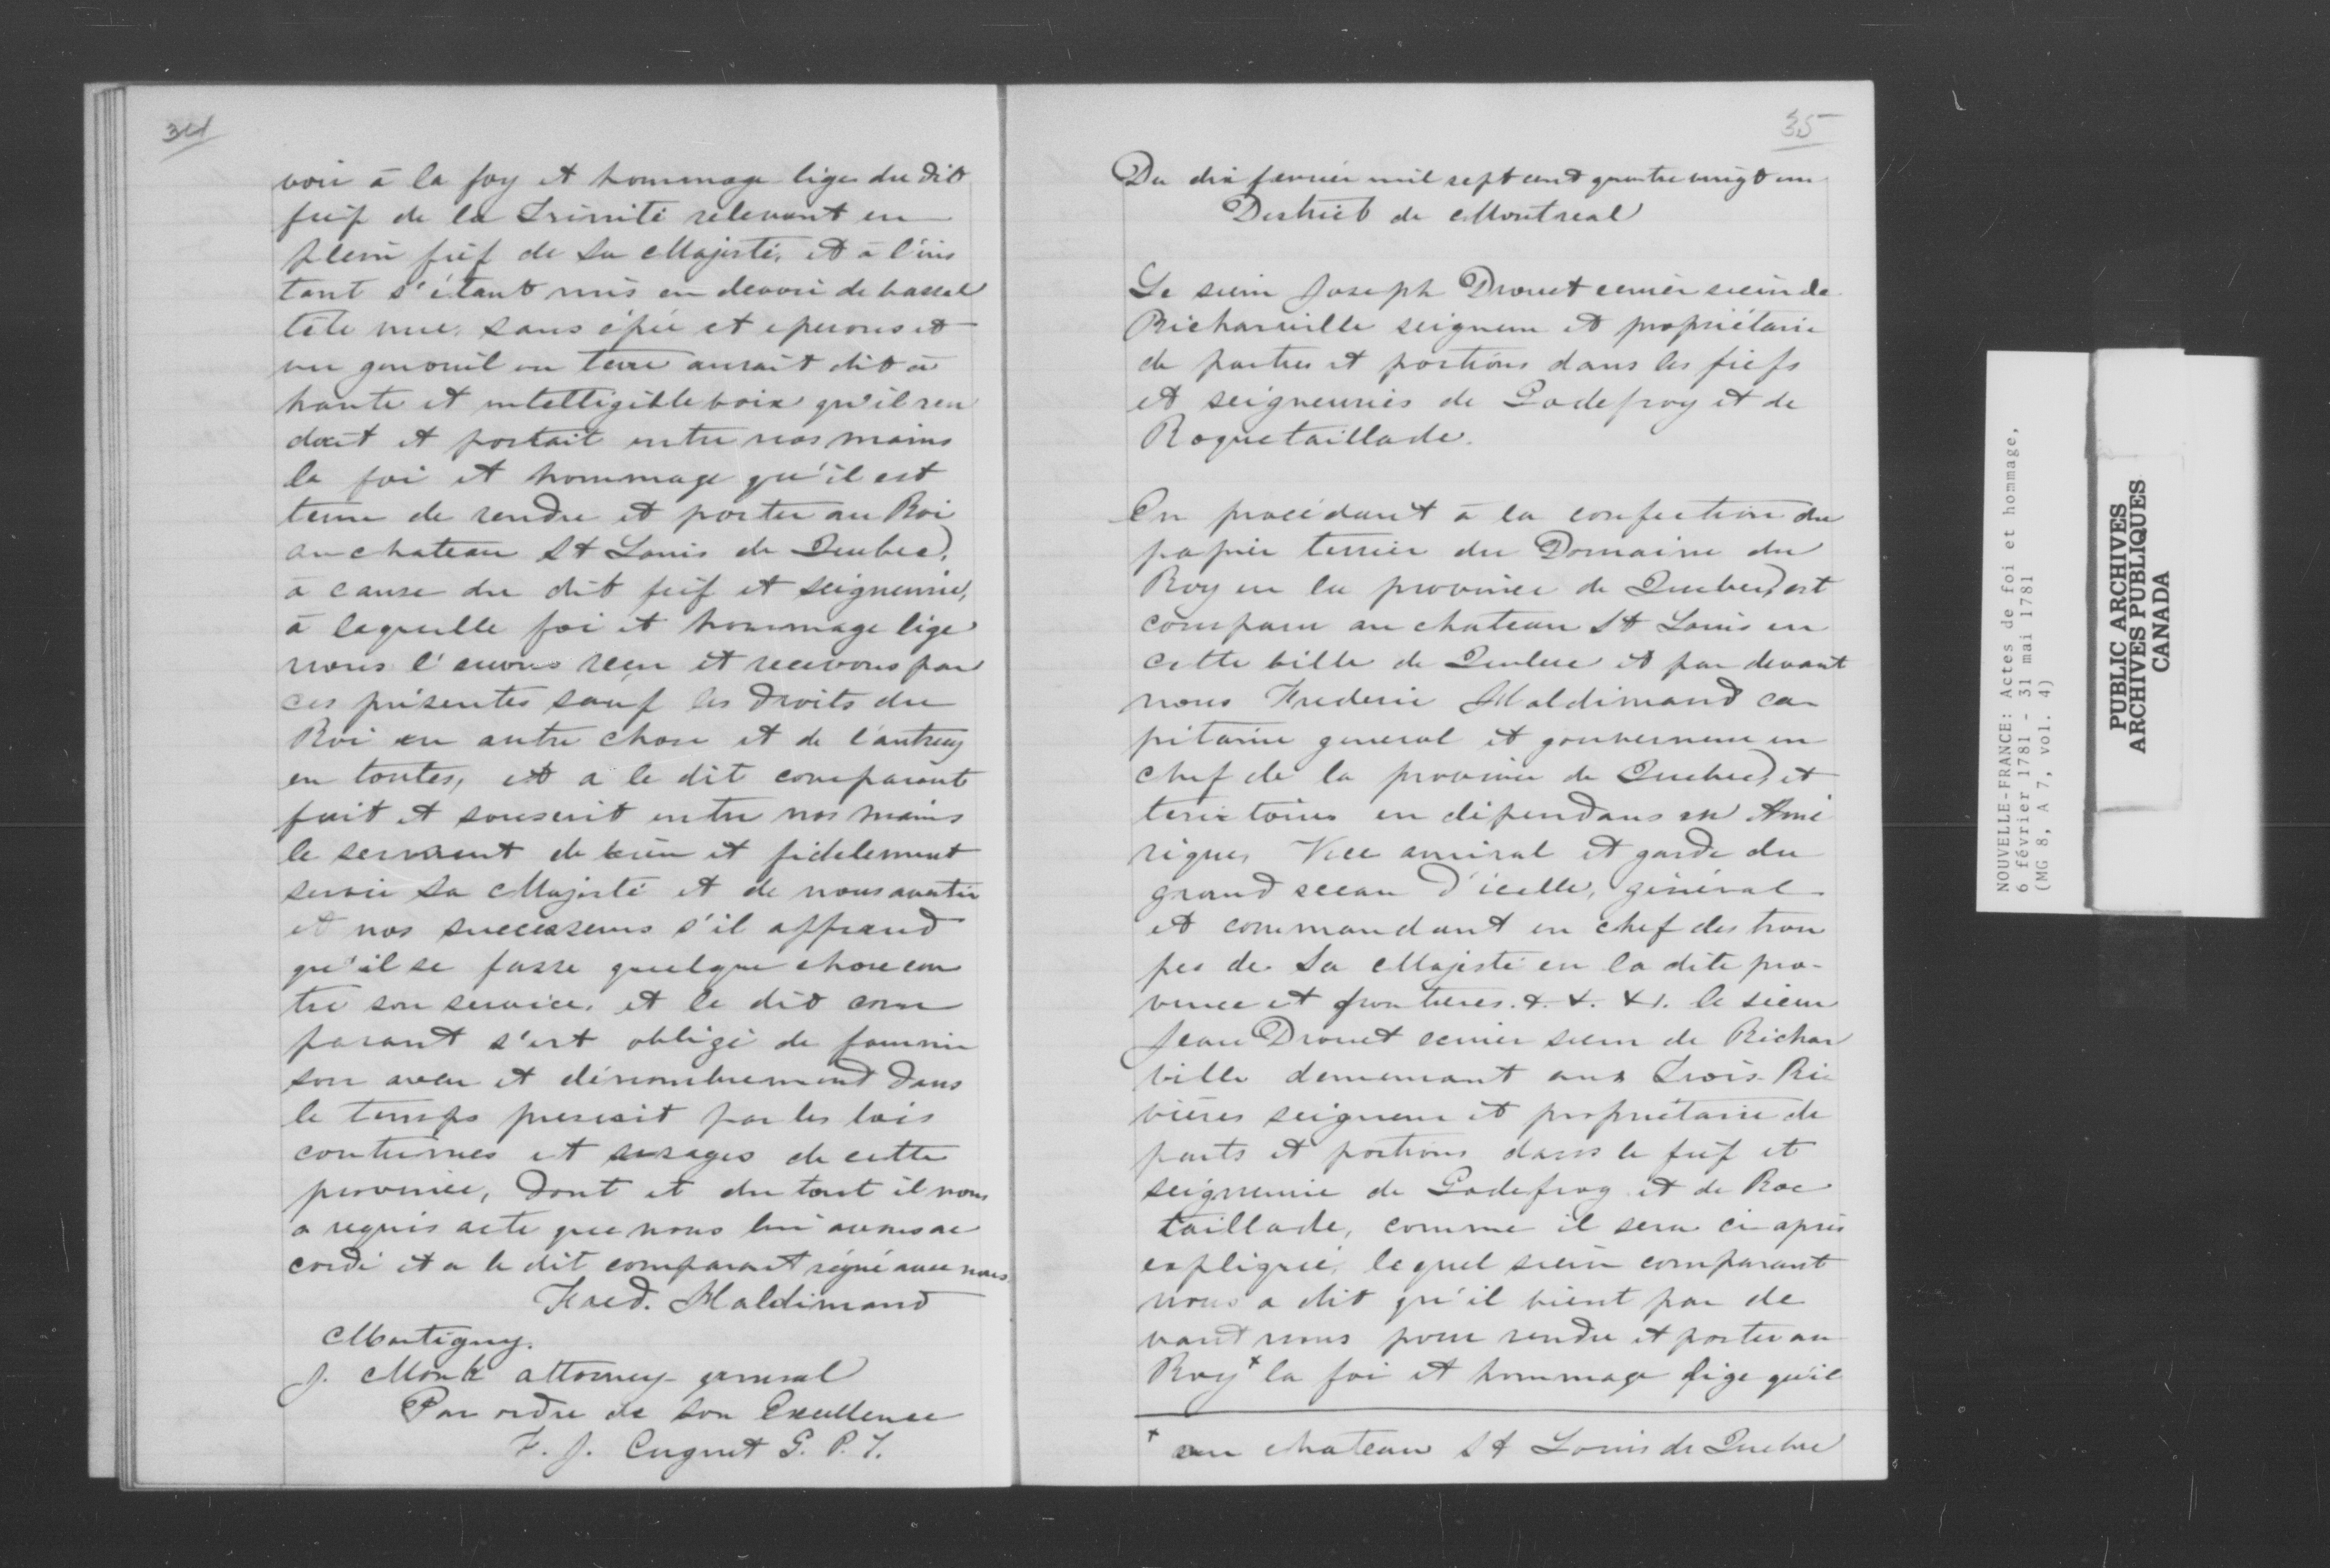 34
voir à la foy et hommage lige du dit
fief de la Trinité relevant en
plein fief de Sa Majesté, et à l'ins
tant s'étant mis en devoir de vassal
tête nue, sans épée et eperons et
un genouil en terre aurait dit à
haute et intelligible voix qu'il ren
dait et portait entre nos mains
la foi et hommage qu'il est
tenu de rendre et porter au Roi
au chateau St Louis de Quebec,
à cause du dit fief et seigneurie,
à laquelle foi et hommage lige
nous l'avons reçu et recevons par
ces présentes sauf les droits du
Roi en autre chose et de l'autruy
en toutes, et a le dit comparant
fait et souscrit entre nos mains
le serment de bien et fidelement
servir Sa Majesté et de nous avertir
et nos successeurs s'il apprend
qu'il se fasse quelque chose con
tre son service, et le dit com
parant s'est obligé de fournir
son aveu et dénombrement dans
le temps prescrit par les lois
coutumes et usages de cette
province, Dont et du tout il nous
a requis acte que nous lui avons ac
cordé et a le dit comparant signé avec nous
Fred. Haldimand
Montigny.
J. Monk attorney general
Par ordre de Son Excellence
F. J. Cugnet G. P. T.
35
Du dix fevrier mil sept cent quatre vingt un
District de Montreal
Le sieur Joseph Drouet ecuier sieur de
Richarville seigneur et propriétaire
de parties et portions dans les fiefs
et seigneuries de Godefroy et de
Roquetaillade.
En procédant à la confection du
papier terrier du Domaine du
Roy en la province de Quebec, est
comparu au chateau St Louis en
cette ville de Quebec et par devant
nous Frederic Haldimand ca
pitaine general et gouverneur en
chef de la province de Quebec, et
territoires en dépendans en Amé
rique, Vice amiral et garde du
grand sceau d'icelle, général
et commandant en chef des trou
pes de Sa Majesté en la dite pro-
vince et frontieres. &. &. &. le sieur
Jean Drouet ecuier sieur de Richar
ville demeurant aux Trois-Ri
vières seigneur et propriétaire de
parts et portions dans le fief et
seigneurie de Godefroy et de Roc
taillade, comme il sera ci après
expliqué, lequel sieur comparant
nous a dit qu'il vient par de
vant nous pour rendre et porter au
Roy + la foi et hommage lige qu'il
+ au chateau St Louis de Quebec
NOUVELLE-FRANCE: Actes de foi et hommage,
6 février 1781 - 31 mai 1781
(MG 8, A 7, vol. 4)
PUBLIC ARCHIVES
ARCHIVES PUBLIQUES
CANADA